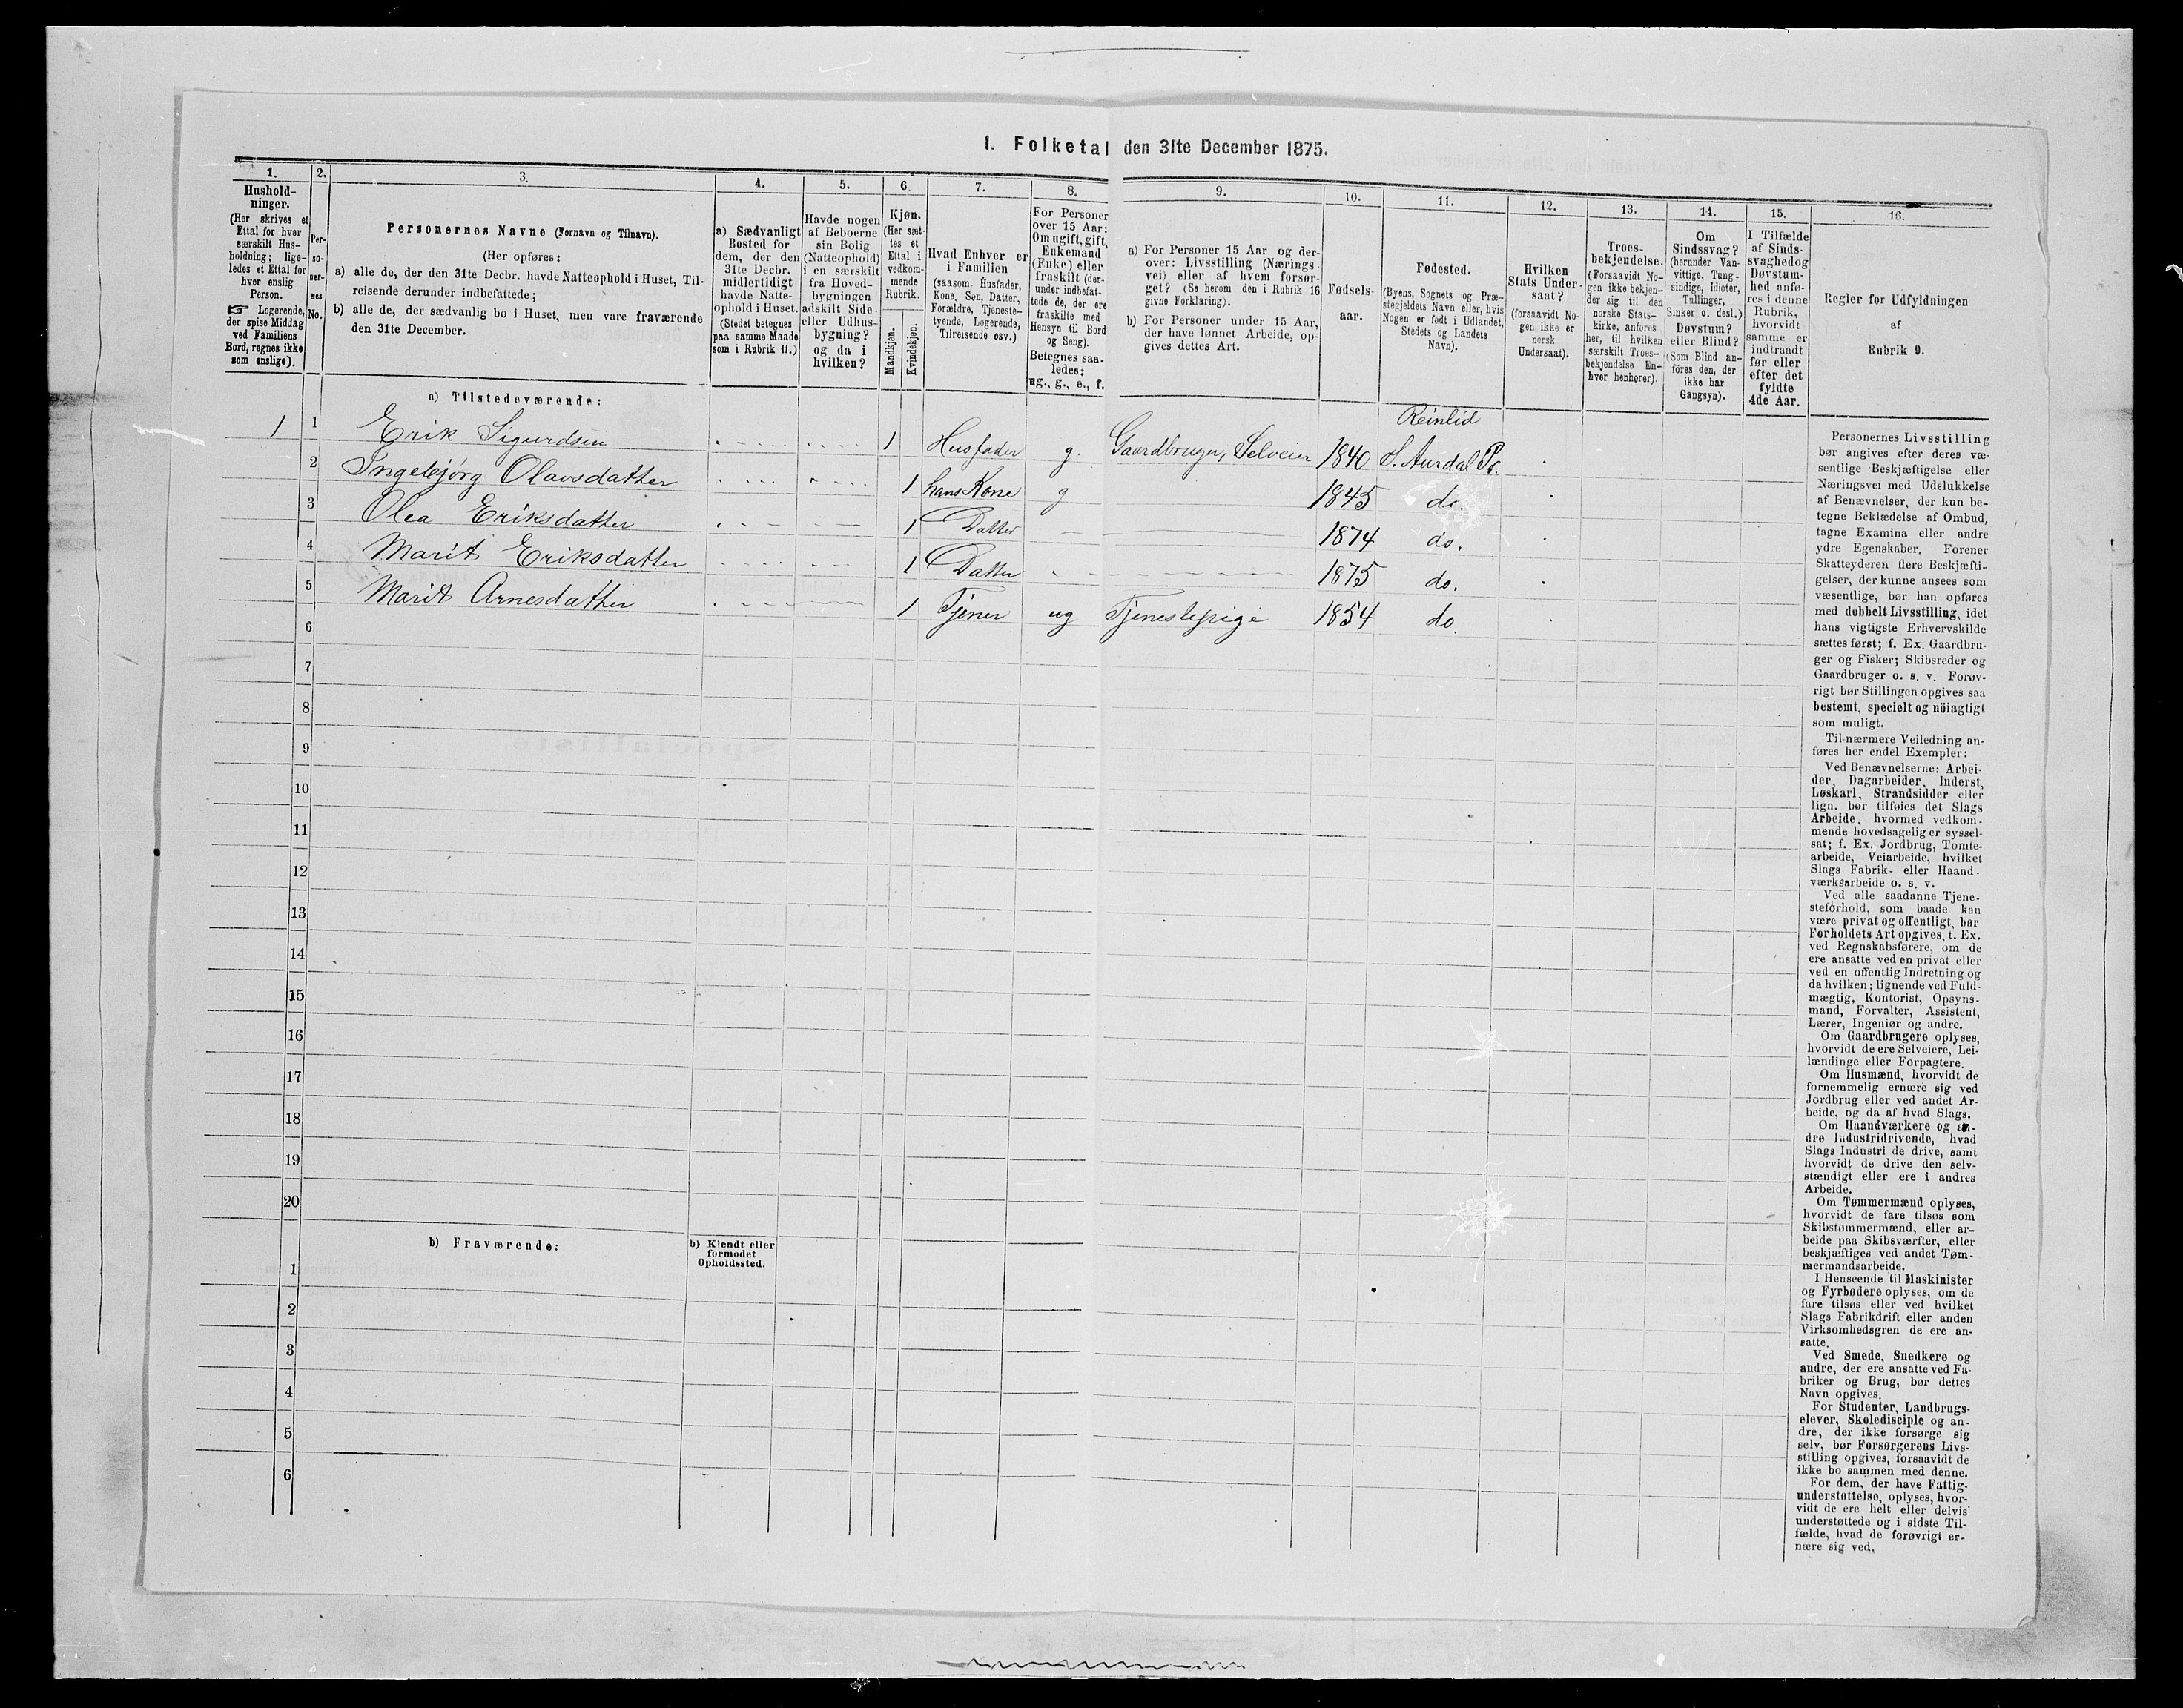 1. Folketal den 31te December 1875.
1.
Hushold-
ninger.
(Her skrives et
Ettal for hver
særskilt Hus-
holdning; lige-
ledes et Ettal for
hver enslig
Person.
☞ Logerende,
der spise Middag
ved Familiens
Bord, regnes ikke
som enslige).
2.
Per-
so-
ner-
nes
No.
3.
Personernes Navne (Fornavn og Tilnavn).
(Her opføres:
a) alle de, der den 31te Decbr. havde Natteophold i Huset, Til-
reisende derunder indbefattede;
b) alle de, der sædvanlig bo i Huset, men vare fraværende
den 31te December.
4.
a) Sædvanligt
Bosted for
dem, der den
31te Decbr.
midlertidigt
havde Natte-
ophold i Huset.
(Stedet betegnes
paa samme Maade
som i Rubrik 11.)
5.
Havde nogen
af Beboerne
sin Bolig
(Natteophold)
i en særskilt
fra Hoved-
bygningen
adskilt Side-
eller Udhus-
bygning?
og da i
hvilken?
6.
Kjøn.
(Her sæt-
tes et
Ettal i
vedkom-
mende
Rubrik.
Mandkjøn.
Kvindekjøn.
7.
Hvad Enhver er
i Familien
(saasom Husfader,
Kone, Søn, Datter,
Forældre, Tjeneste-
tyende, Logerende,
Tilreisende osv.)
8.
For Personer
over 15 Aar:
Om ugift, gift,
Enkemand
(Enke) eller
fraskilt (der-
under indbefat-
tede de, der ere
fraskilte med
Hensyn til Bord
og Seng).
Betegnes saa-
ledes:
ug., g., e., f.
9.
a) For Personer 15 Aar og der-
over: Livsstilling (Nærings-
vei) eller af hvem forsør-
get? (Se herom den i Rubrik 16
givne Forklaring).
b) For Personer under 15 Aar,
der have lønnet Arbeide, op-
gives dettes Art.
10.
Fødsels-
aar.
11.
Fødested.
(Byens, Sognets og Præ-
stegjeldets Navn eller, hvis
Nogen er født i Udlandet,
Stedets og Landets
Navn).
12.
Hvilken
Stats Under-
saat?
(forsaavidt No-
gen ikke er
norsk
Undersaat).
13.
Troes-
bekjendelse.
(Forsaavidt No-
gen ikke bekjen-
der sig til den
norske Stats-
kirke, anføres
her, til hvilken
særskilt Troes-
bekjendelse En-
hver henhører).
14.
Om
Sindssvag?
(herunder Van-
vittige, Tung-
sindige, Idioter,
Tullinger,
Sinker o. desl.)
Døvstum?
eller Blind?
(Som Blind an-
føres den, der
ikke har
Gangsyn).
15.
I Tilfælde
af Sinds-
svaghed og
Døvstum-
hed anfø-
res i denne
Rubrik,
hvorvidt
samme er
indtraadt
før eller
efter det
fyldte
4de Aar.
16.
Regler for Udfyldningen
af
Rubrik 9.
a) Tilstedeværende:
Reinlid
1 1 Erik Sigurdsen 1 Husfader g. Gaardbruger, Selveier 1840 S. Aurdal Pr.
2 Ingebjørg Olavsdatter 1 hans Kone g 1845 do.
3 Olea Eriksdatter 1 Datter 1874 do.
4 Marit Eriksdatter 1 Datter 1875 do.
5 Marit Arnesdatter 1 Tjener ug Tjenestepige 1854 do.
6
7
8
9
10
11
12
13
14
15
16
17
18
19
20
b) Fraværende:
b) Kjendt eller
formodet
Opholdssted.
1
2
3
4
5
6
Personernes Livsstilling
bør angives efter deres væ-
sentlige Beskjæftigelse eller
Næringsvei med Udelukkelse
af Benævnelser, der kun be-
tegne Beklædelse af Ombud,
tagne Examina eller andre
ydre Egenskaber. Forener
Skatteyderen flere Beskjæfti-
gelser, der kunne ansees som
væsentlige, bør han opføres
med dobbelt Livsstilling, idet
hans vigtigste Erhvervskilde
sættes først; f. Ex. Gaardbru-
ger og Fisker; Skibsreder og
Gaardbruger o. s. v. Forøv-
rigt bør Stillingen opgives saa
bestemt, specielt og nöiagtigt
som muligt.
Til nærmere Veiledning an-
føres her endel Exempler:
Ved Benævnelserne: Arbei-
der, Dagarbeider, Inderst,
Løskarl, Strandsidder eller
lign. bør tilføies det Slags
Arbeide, hvormed vedkom-
mende hovedsagelig er syssel-
sat; f. Ex. Jordbrug, Tomte-
arbeide, Veiarbeide, hvilket
Slags Fabrik- eller Haand-
værksarbeide o. s. v.
Ved alle saadanne Tjene-
steforhold, som baade kan
være privat og offentligt, bør
Forholdets Art opgives, t. Ex.
ved Regnskabsførere, om de
ere ansatte ved en privat eller
ved en offentlig Indretning og
da hvilken; lignende ved Fuld-
mægtig, Kontorist, Opsyns-
mand, Forvalter, Assistent,
Lærer, Ingeniør og andre.
Om Gaardbrugere oplyses,
hvorvidt de ere Selveiere, Lei-
lændinge eller Forpagtere.
Om Husmænd, hvorvidt de
fornemmelig ernære sig ved
Jordbrug eller ved andet Ar-
beide, og da af hvad Slags.
Om Haandværkere og an-
dre Industridrivende, hvad
Slags Industri de drive, samt
hvorvidt de drive den selv-
stændigt eller ere i andres
Arbeide.
Om Tømmermænd oplyses,
hvorvidt de fare tilsøs som
Skibstømmermænd, eller ar-
beide paa Skibsværfter, eller
beskjæftiges ved andet Tøm-
mermandsarbeide.
I Henseende til Maskinister
og Fyrbødere oplyses, om de
fare tilsøs eller ved hvilket
Slags Fabrikdrift eller anden
Virksomhedsgren de ere an-
satte.
Ved Smede, Snedkere og
andre, der ere ansatte ved Fa-
briker og Brug, bør dettes
Navn opgives.
For Studenter, Landbrugs-
elever, Skoledisciple og an-
dre, der ikke forsørge sig
selv, bør Forsørgerens Livs-
stilling opgives, forsaavidt de
ikke bo sammen med denne.
For dem, der have Fattig-
understøttelse, oplyses, hvor-
vidt de ere helt eller delvis
understøttede og i sidste Til-
fælde, hvad de forøvrigt er-
nære sig ved.